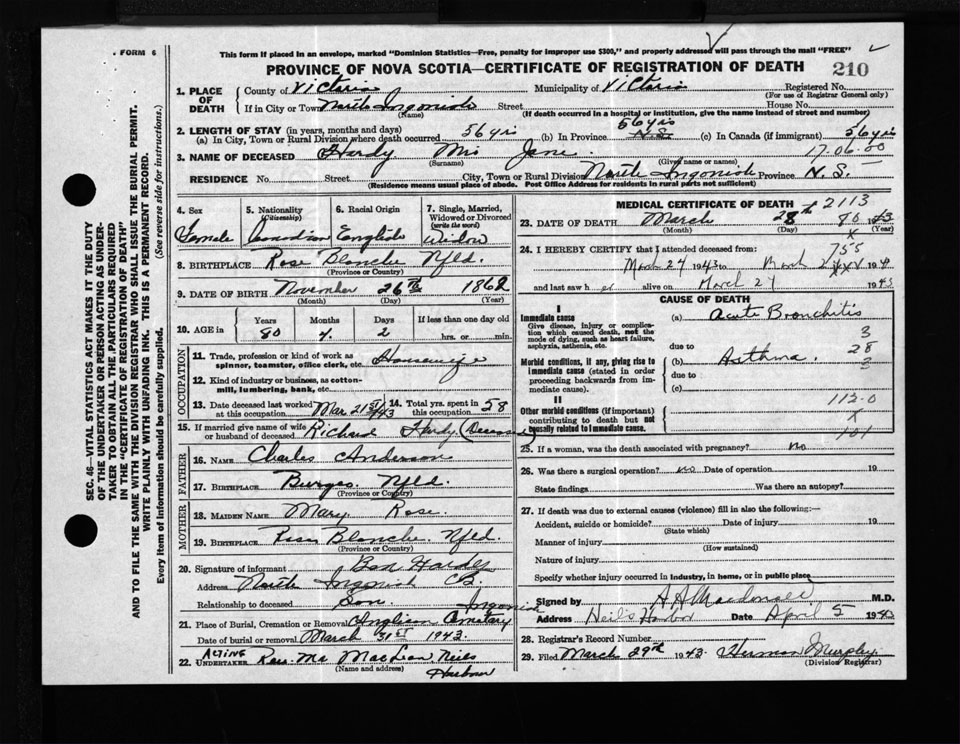 FORM 6
This form if placed in an envelope, marked "Dominion Statistics—Free, penalty for improper use $300," and properly addressed will pass through the mail "FREE"
PROVINCE OF NOVA SCOTIA—CERTIFICATE OF REGISTRATION OF DEATH 210
1. PLACE OF DEATH County of Victoria Municipality of Victoria Registered No.
(For use of Registrar General only)
If in City or Town North Ingonish Street House No.
(Name) (If death occurred in a hospital or institution, give the name instead of street and number)
2. LENGTH OF STAY (in years, months and days)
(a) In City, Town or Rural Division where death occurred 56 yrs (b) In Province 56 yrs N.S. (c) In Canada (if immigrant) 56 yrs
3. NAME OF DECEASED Hardy Mrs Jane 17.06.00
(Surname) (Given name or names)
RESIDENCE No. Street City, Town or Rural Division North Ingonish Province N.S.
(Residence means usual place of abode. Post Office Address for residents in rural parts not sufficient)
4. Sex Female
5. Nationality (Citizenship) Canadian
6. Racial Origin English
7. Single, Married, Widowed or Divorced (write the word) Widow
8. BIRTHPLACE Rose Blanche Nfld.
(Province or Country)
9. DATE OF BIRTH November 26th 1862
(Month) (Day) (Year)
10. AGE in Years 80 Months 4 Days 2 If less than one day old hrs. or min.
OCCUPATION
11. Trade, profession or kind of work as spinner, teamster, office clerk, etc. Housewife
12. Kind of industry or business, as cotton-mill, lumbering, bank, etc.
13. Date deceased last worked at this occupation Mar 21st/43 14. Total yrs. spent in this occupation 58
15. If married give name of wife or husband of deceased Richard Hardy (Deceased)
FATHER
16. NAME Charles Anderson
17. BIRTHPLACE Burgeo Nfld.
(Province or Country)
MOTHER
18. MAIDEN NAME Mary Rose
19. BIRTHPLACE Rose Blanche Nfld.
(Province or Country)
20. Signature of informant Hardy
Address North Ingonish CB.
Relationship to deceased Son
21. Place of Burial, Cremation or Removal Anglican Cemetary Ingonish
Date of burial or removal March 31st 1943.
22. ACTING UNDERTAKER MacLeod Neils Harbour
(Name and address)
MEDICAL CERTIFICATE OF DEATH 2113
23. DATE OF DEATH March 28th 1943
(Month) (Day) (Year)
80
x
24. I HEREBY CERTIFY that I attended deceased from:
755
March 24 1943 to March 1943
and last saw her alive on March 27 1943
CAUSE OF DEATH
I
Immediate cause
Give disease, injury or complication which caused death, not the mode of dying, such as heart failure, asphyxia, asthenia, etc.
(a) Acute Bronchitis
3
due to 28
Morbid conditions, if any, giving rise to immediate cause (stated in order proceeding backwards from immediate cause).
(b) Asthma.
due to
(c)
112.0
x
101
II
Other morbid conditions (if important) contributing to death but not causally related to immediate cause.
25. If a woman, was the death associated with pregnancy? no
26. Was there a surgical operation? no Date of operation 19
State findings Was there an autopsy?
27. If death was due to external causes (violence) fill in also the following:—
Accident, suicide or homicide? Date of injury 19
(State which)
Manner of injury
(How sustained)
Nature of injury
Specify whether injury occurred in industry, in home, or in public place
Signed by A H Macdonald M.D.
Address Neil's Harbor Date April 5 1943
28. Registrar's Record Number
29. Filed March 29th 1943 Herman Murphy
(Division Registrar)
SEC. 46—VITAL STATISTICS ACT MAKES IT THE DUTY
OF THE UNDERTAKER OR PERSON ACTING AS UNDER-
TAKER TO OBTAIN ALL THE PARTICULARS REQUIRED
IN THE "CERTIFICATE OF REGISTRATION OF DEATH"
AND TO FILE THE SAME WITH THE DIVISION REGISTRAR WHO SHALL ISSUE THE BURIAL PERMIT.
WRITE PLAINLY WITH UNFADING INK. THIS IS A PERMANENT RECORD.
Every item of information should be carefully supplied. (See reverse side for instructions.)